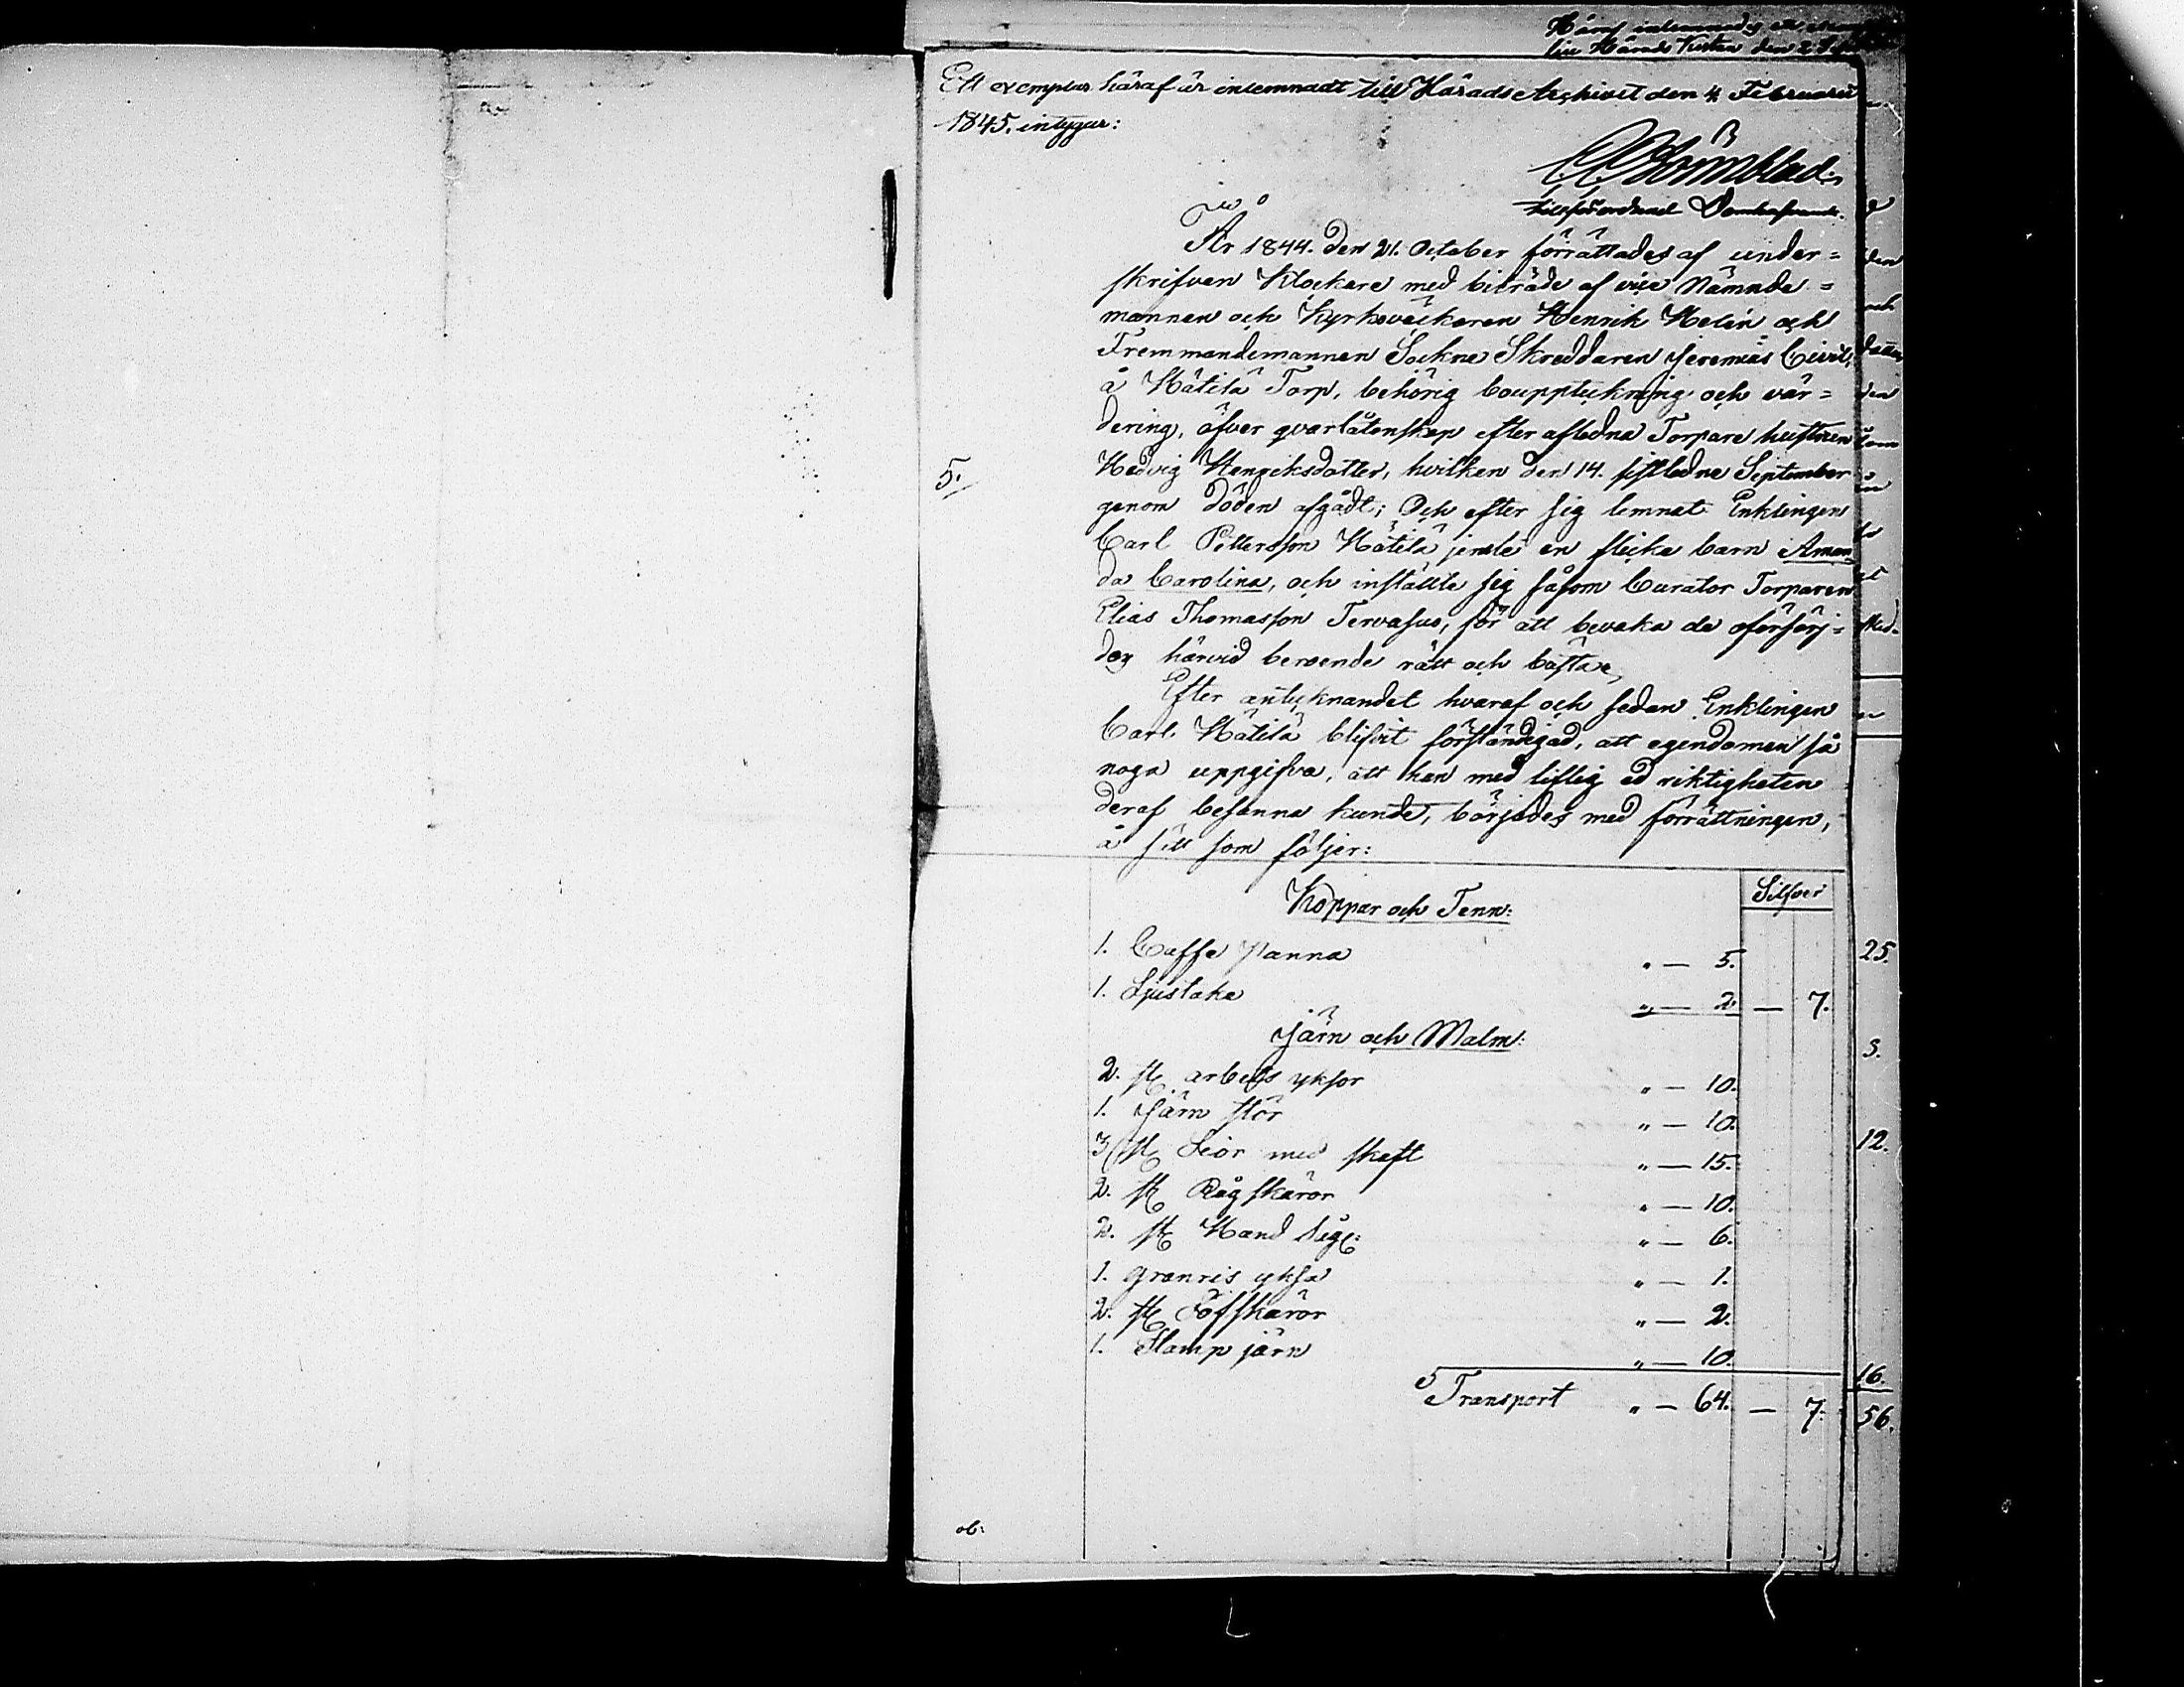 Ett exemplar häraf är inlemnadt till Härads Archivet den 4. Februarii
1845. intygar:
År 1844. den 21. October förrättades af under=
skrifven Klockare med biträde af vice Nämnde=
mannen och Kyrkoväckaren Henrik Helin och
Fremmandemannen Sockne Skreddaren Jeremias
å Hätilä Torp, behörig bouppteckning och vär=
dering, öfver qvarlåtenskap efter afledna Torpare hustrun
5.
Hedvig Henriksdotter, hvilken den 14. sistledne September
genom döden afgådt; Och efter sig lemnat Enklingen
Carl Pettersson Hätilä jemte en flicka barn Aman
da Carolina, och inställte sig såsom Curator Torparen
Elias Thomasson Tervasuo, för att bevaka de oförsörj=
des härvid beroende rätt och bästa,
Efter antecknandet hvaraf och sedan Enklingen
Carl Hätilä blifvit förständigad, att egendomen så
noga uppgifva, att han med liflig ed riktigheten
deraf besanna kunde, börjades med förrättningen,
å sätt som följer:
Silfver
Koppar och Tenn:
1. Caffe Panna " — 5. 25.
1. Ljustake " — 2. — 7.
Järn och Malm:
2. st arbets yxor " — 10.
1. Järn stör " — 10.
3 st Liör med skaft " — 15. 12.
2. st Råg skäror " — 10.
2. st Hand såg: " — 6.
1. granris yxa " — 1.
2. st Löfskäror " — 2.
1. Stamp järn " — 10. 16.
Transport " — 64. — 7. 56.